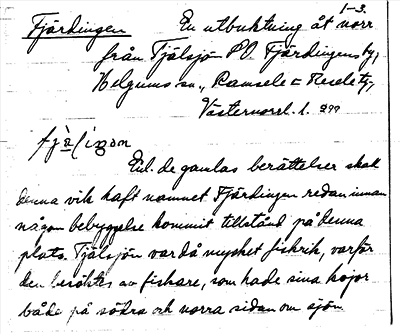 1-3.
Fjärdingen En utbuktning åt norr
från Tjälsjön PO. Fjärdingens tg,
Helgums sn., Ramsele o Resele tg,
Västernorrl. l.
Enl. de gamlas berättelser skal
denna vik haft namnet Fjärdingen redan innan
någon bebyggelse kommit tillstånd på denna
plats. Tjälsjön var då mycket fiskrik, varför
den besöktes av fiskare, som hade sina kojor
både på södra och norra sidan om sjön